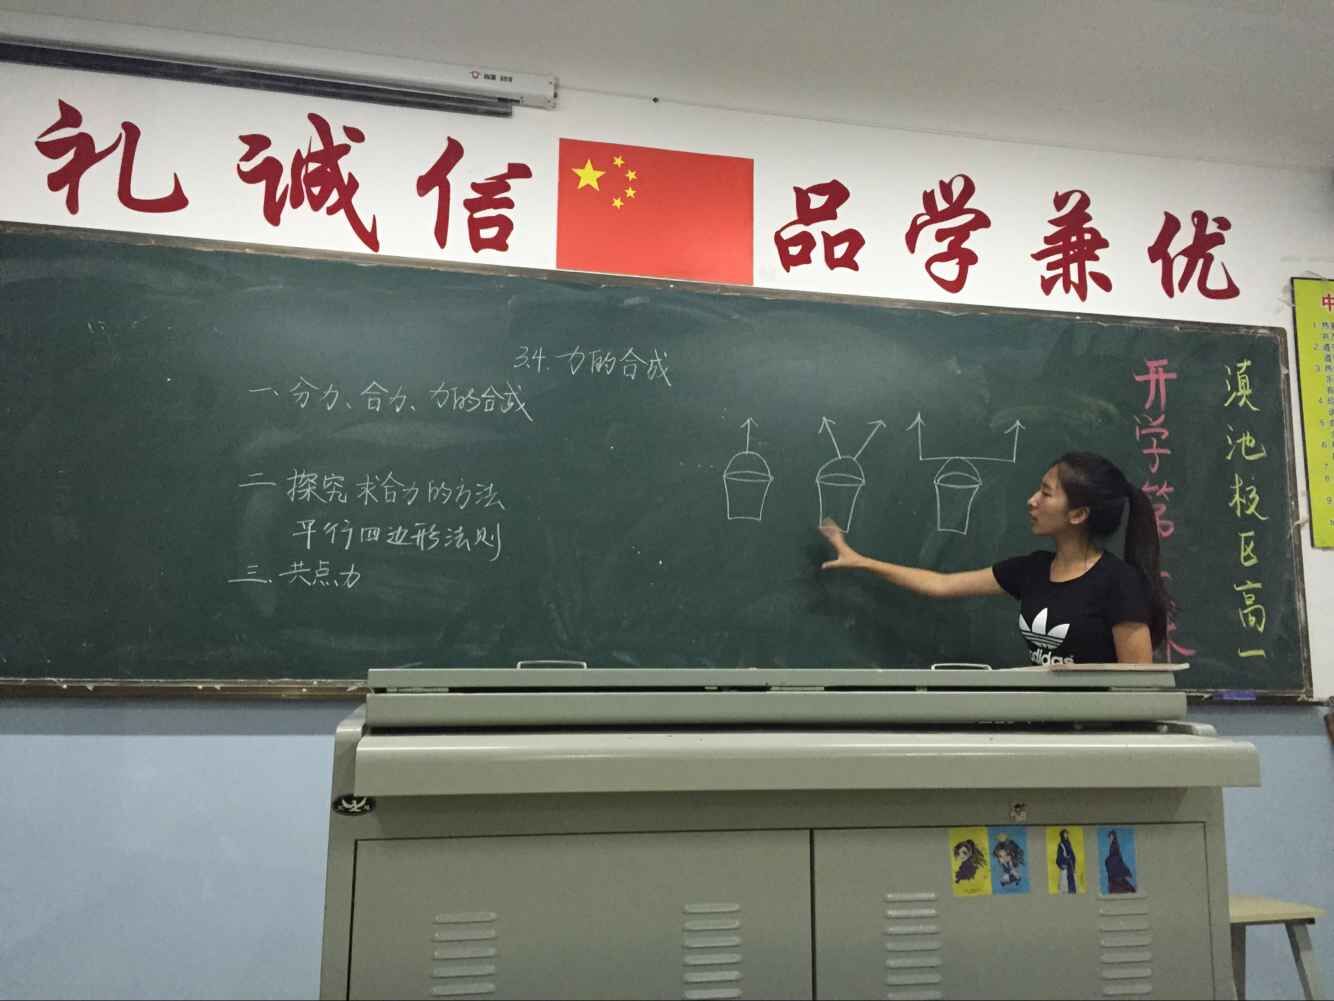 礼 诚 信 品 学 兼 优
3.4. 力的合成
一、分力、合力、力的合成
二 探究求合力的方法
平行四边形法则
三、共点力
开学第一课
滇池校区高一
adidas